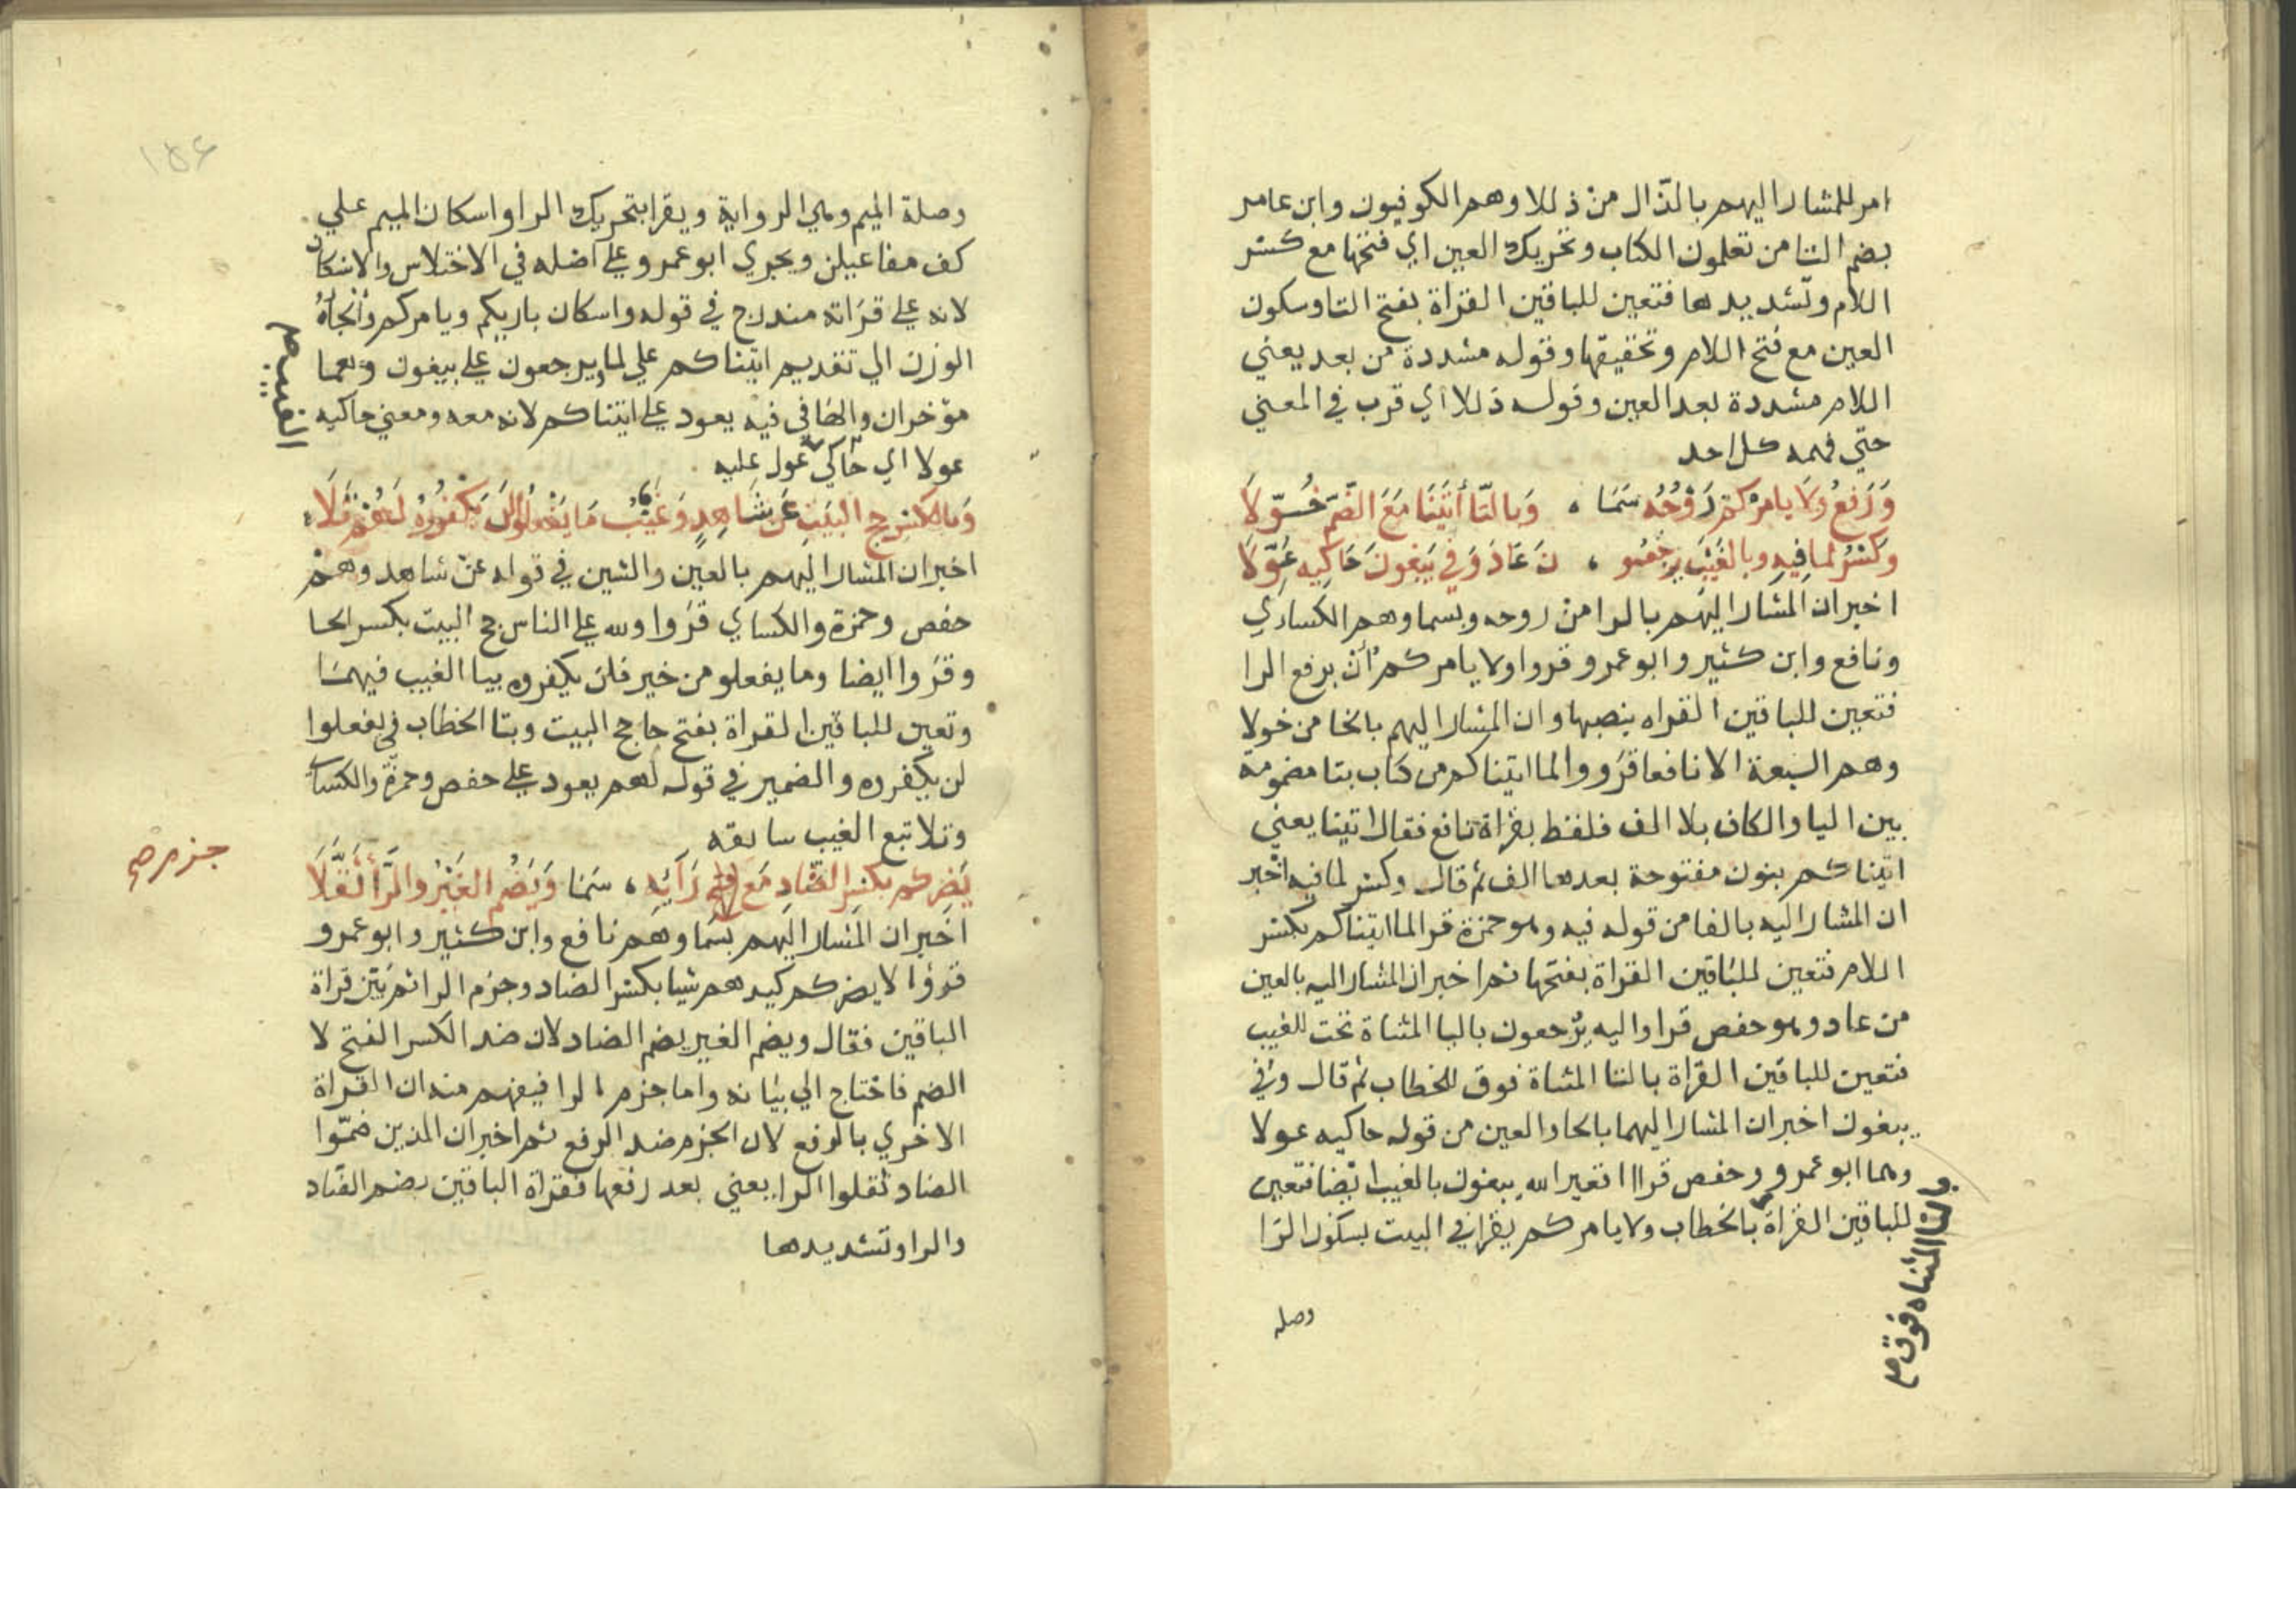 امر للمشار اليهم بالذال من ذللا وهم الكوفيون وابن عامر
بضم التا من تعلمون الكتاب وتحريك العين اي فتحها مع كسر
اللام وتشديدها فتعين للباقين القراة بفتح التا وسكون
العين مع فتح اللام وتخفيفها وقوله مشددة من بعد يعني
اللام مشددة بعد العين وقوله ذللا اي قرب في المعني
حتي فهمه كل احد
وَرَفعُ ولَا يامركم رَوْحُهُ سَمَا ، وَبالتَّا أتَينَا مَعَ الضَّمِّ خُوِّلَا
وكَسْرُ لما فِيهِ وبالغَيْبِ يرجَعُو ، نَ عَادَ وَفِي يَبغونَ حَاكِيهِ عَوَّلَا
اخبر ان المشار اليهم بالرا من روحه وبسما وهم الكساءي
ونافع وابن كثير وابو عمرو قروا ولا يامركم أن برفع الرا
فتعين للباقين القراه بنصبها وان المشار اليهم بالخا من خولا
وهم السبعة الا نافعا قرووا لما اتيتاكم من كتاب بتا مضمومة
بين اليا والكاف بلا الف فلفظ بقراة نافع فقال اتينا يعني
اتيناكم بنون مفتوحة بعدها الف ثم قال وكسر لما فيه اخبر
ان المشار اليه بالفا من قوله فيه وهو حمزة قرا لما اتيناكم بكسر
اللام فتعين للباقين القراة بفتحها ثم اخبر ان المشار اليه بالعين
من عاد وهو حفص قرا واليه يرجعون باليا المثناة تحت للغيب
فتعين للباقين القراة بالتا المثناة فوق للخطاب ثم قال وفي
يبغون اخبر ان المشار اليهما بالحا والعين من قوله حاكيه عولا
وهما ابو عمرو وحفص قراا افغير الله يبغون بالغيب ايضا فتعين
للباقين القراة بالخطاب ولا يامركم يقرا في البيت بسكون الرا
وبالتا المثناه فوق صح
وصله
وصلة الميم وهي الرواية ويقرا بتحريك الرا واسكان الميم علي
كف مفاعيلن ويجري ابو عمرو علي اصله في الاختلاس والاسكان
لانه علي قراته مندرج في قوله واسكان باريكم ويامركم والجاهُ
الوزن الي تقديم اتيناكم علي لما ويرجعون علي يبغون وهما
مؤخران والها في فيه يعود علي اتيناكم لانه معه ومعني حاكيه
عولا اي حاكي عول عليه
الغيب صح
وَبالكسرِ حج البيتِ عَن شَاهِدٍ وَغَيْبُ مَا يَفْعلُوا لَن يكْفُروهُ لَهُمْ تَلَا
اخبر ان المشار اليهم بالعين والشين في قوله عن شاهد وهم
حفص وحمزة والكساي قروا ولله علي الناس حج البيت بكسر الحا
وقروا ايضا وما يفعلو من خير فلن يكفروه بيا الغيب فيهما
وتعين للباقين القراة بفتح حا حج البيت وبتا الخطاب في يفعلوا
لن يكفروه والضمير في قوله لهم يعود علي حفص وحمزة والكساي
وتلا تبع الغيب سابقه
يَضِركم بكسر الضَّادِ مَع جزم رَآئِهِ ، سَمَا وَيَضُم الغَيْرُ والرَّا ثَقَّلَا
جزم صح
اخبر ان المشار اليهم بسما وهم نافع وابن كثير وابو عمرو
قرؤا لا يضركم كيدهم شيا بكسر الضاد وجزم الرا ثم بين قراة
الباقين فقال ويضم الغير يضم الضاد لان ضد الكسر الفتح لا
الضم فاحتاج الي بيانه واما جزم الرا فيفهم منه ان القراة
الاخري بالرفع لان الجزم ضد الرفع ثم اخبر ان الذين ضموا
الضاد ثقلوا الرا يعني بعد رفعها فقراة الباقين بضم الضاد
والرا وتشديدها